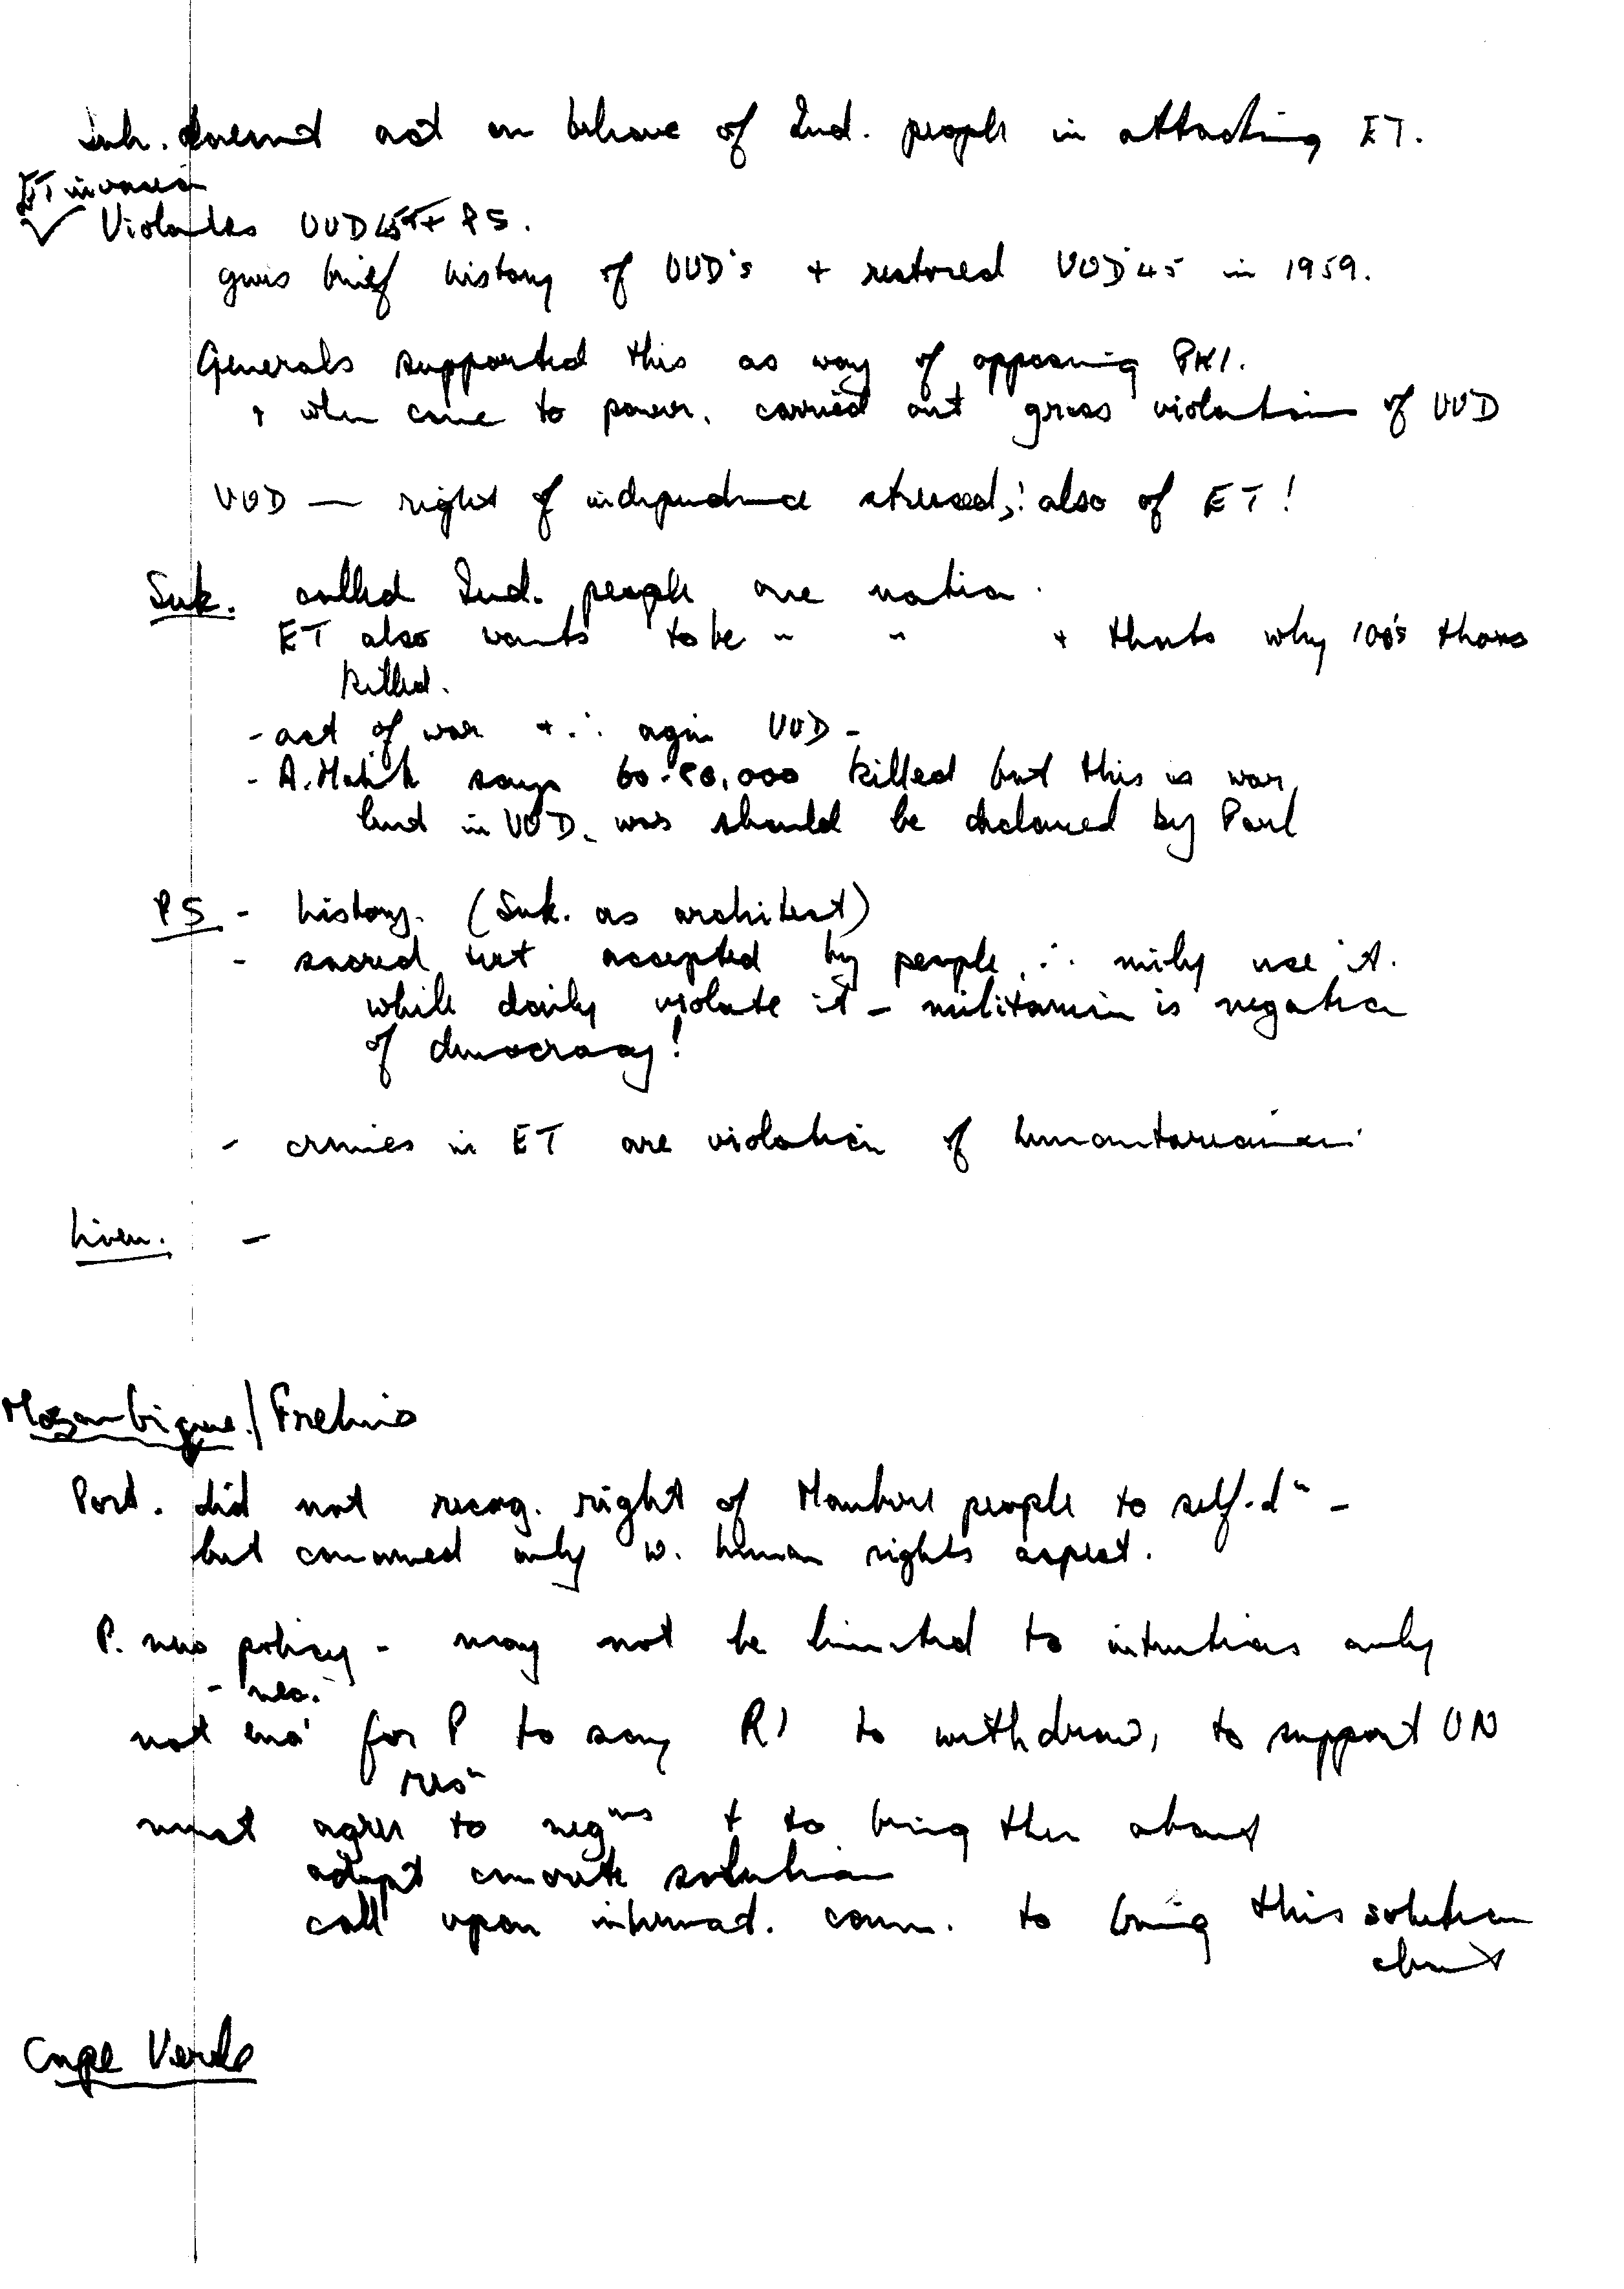 Suh. doesnt act on behave of Ind. people in attacking ET.
ET invasion
✓ Violates UUD45 + PS.
gives brief history of UUD's + restored UUD'45 in 1959.
Generals supported this as way of opposing PKI.
+ when came to power, carried out gross violations of UUD
UUD — right of independence stressed, ∴ also of ET!
Suk. called Ind. people one nation.
ET also wants to be " " + thats why 100's thous
killed.
- act of war + ∴ again UUD -
- A. Malik says 60-80,000 killed but this is war,
and in UUD, war should be declared by Parl
PS - history. (Suk. as architect)
- sacred accepted by people, ∴ mily use it.
while daily violate it - militarism is negation
of democracy!
- crimes in ET are violation of humanitarianism.
Liem. -
Mozambique / Frelimo
Port. did not recog. right of Maubere people to self-dⁿ -
but concerned only w. human rights aspect.
P. new policy - may not be limited to intentions only
- nec.
not eno' for P to say RI to withdraw, to support UN
resⁿ
must agree to negⁿˢ + to bring then about
adopt concrete solution
call upon internat. comm. to bring this solution
about
Cape Verde